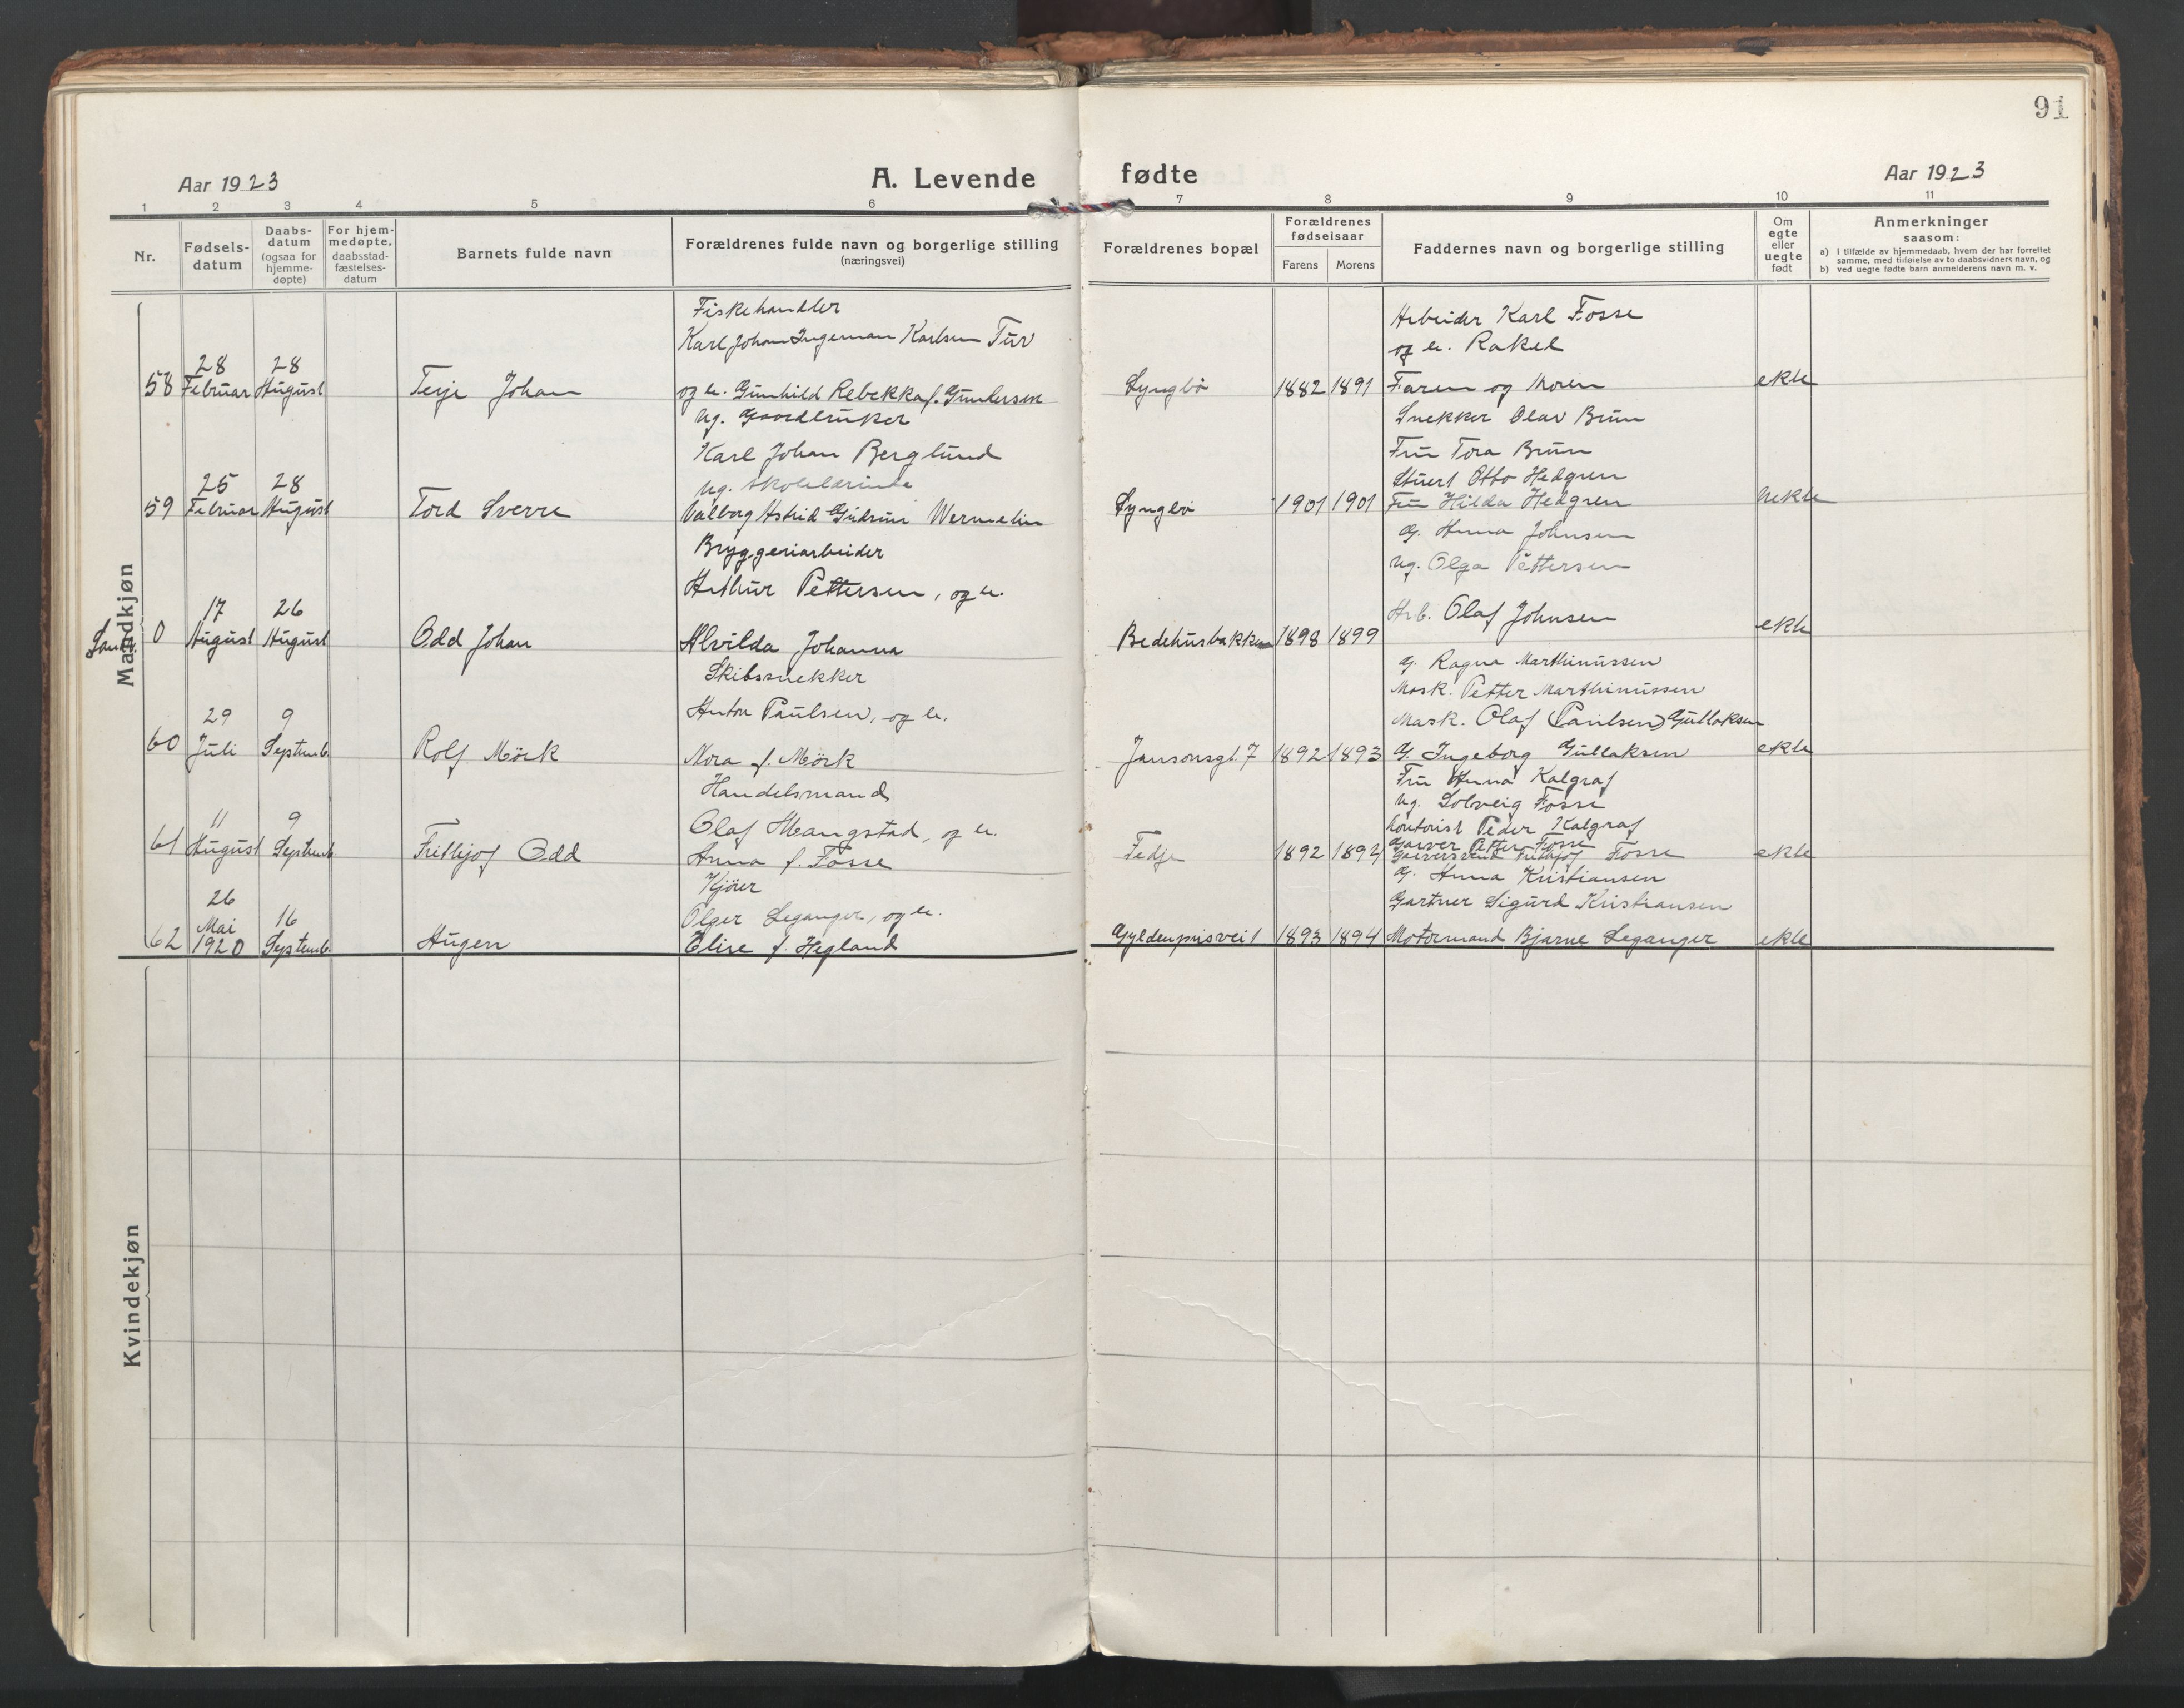 91
Aar 1923
A. Levende fødte
Aar 1923
1 2 3 4 5 6 7 8 9 10 11
Nr.
Fødsels-
datum
Daabs-
datum
(ogsaa for
hjemme-
døpte)
For hjem-
medøpte,
daabsstad-
fæstelses-
datum
Barnets fulde navn
Forældrenes fulde navn og borgerlige stilling
(næringsvei)
Forældrenes bopæl
Forældrenes
fødselsaar
Farens Morens
Faddernes navn og borgerlige stilling
Om
egte
eller
uegte
født
Anmerkninger
saasom:
a) i tilfælde av hjemmedaab, hvem der har forrettet
samme, med tilføielse av to daabsvidners navn, og
b) ved uegte fødte barn anmelderens navn m. v.
Mandkjøn
58
28
Februar
28
August
Terje Johan
Fiskehandler
Karl Johan Ingeman Karlsen Tur
og h. Gunhild Rebekka f. Gundersen
Lyngbø
1882 1891
Arbeider Karl Fosse
og h. Rakel
Faren og Moren
Snekker Olav Brun
ekte
59
25
Februar
28
August
Tord Sverre
Ug. Gaardbruker
Karl Johan Berglund
Ug. skolelærinde
Valborg Astrid Gudrun Wermelin
Lyngbø
1901 1901
Fru Tora Brun
Stuert Otto Hedgren
Fru Hilda Hedgren
uekte
0
17
August
26
August
Odd Johan
Bryggeriarbeider
Arthur Pettersen, og h.
Alvilda Johanna
Bedehusbakken
1898 1899
G. Anna Johnsen
Ug. Olga Pettersen
Arb. Olaf Johnsen
ekte
60
29
Juli
9
Septemb.
Rolf Mörk
Skibssnekker
Anton Paulsen, og h.
Nora f. Mörk
Jansonsgt. 7
1892 1893
G. Ragna Marthinussen
Mask. Petter Marthinussen
Mask. Olaf (Paulsen) Gullaksen
G. Ingeborg Gullaksen
ekte
61
11
August
9
Septemb.
Frithjof Odd
Handelsmand
Olaf Mangstad, og h.
Anna f. Fosse
Fedje
1892 1892
Fru Anna Kalgraf
Ug. Solveig Fosse
Kontorist Peder Kalgraf
Garver Petter Fosse
Garversvend Frithjof Fosse
ekte
62
26
Mai
1920
16
Septemb.
Augen
Kjører
Olger Leganger, og h.
Elise f. Hegland
Gyldenprisvei 1
1893 1894
G. Anna Kristiansen
Gartner Sigurd Kristiansen
Motormand Bjarne Leganger
ekte
Kvindekjøn